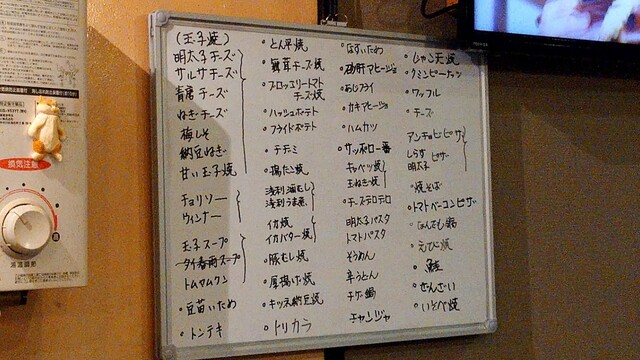 (玉子焼)
明太子チーズ
サルサチーズ
青唐チーズ
ねぎチーズ
梅しそ
納豆ねぎ
甘い玉子焼
チョリソー
ウィンナー
玉子スープ
タイ春雨スープ
トムヤムクン
・豆苗いため
・トンテキ
・とん平焼
・舞茸チーズ焼
・ブロッコリートマト
チーズ焼
・ハッシュポテト
・フライドポテト
・テヂミ
・揚たこ焼
浅利酒むし
浅利うま煮
イカ焼
イカバター焼
・豚むし焼
・厚揚げ焼
・キッネ納豆焼
・トリカラ
・砂肝アヒージョ
・あじフライ
・カキアヒージョ
・ハムカツ
・サッポロ一番
キャベツ焼
玉ねぎ焼
・チーズテロテロ
明太子パスタ
トマトパスタ
そうめん
辛うどん
チゲ鍋
チャンジャ
・しゃこ天焼
・クミンピーマン
・ワッフル
・チーズ
アンチョビピザ
しらす
明太子
ピザ
・焼そば
・トマトベーコンピザ
・なんでも鍋
・えび焼
・鮭
・ぜんざい
・いそべ焼
換気注意